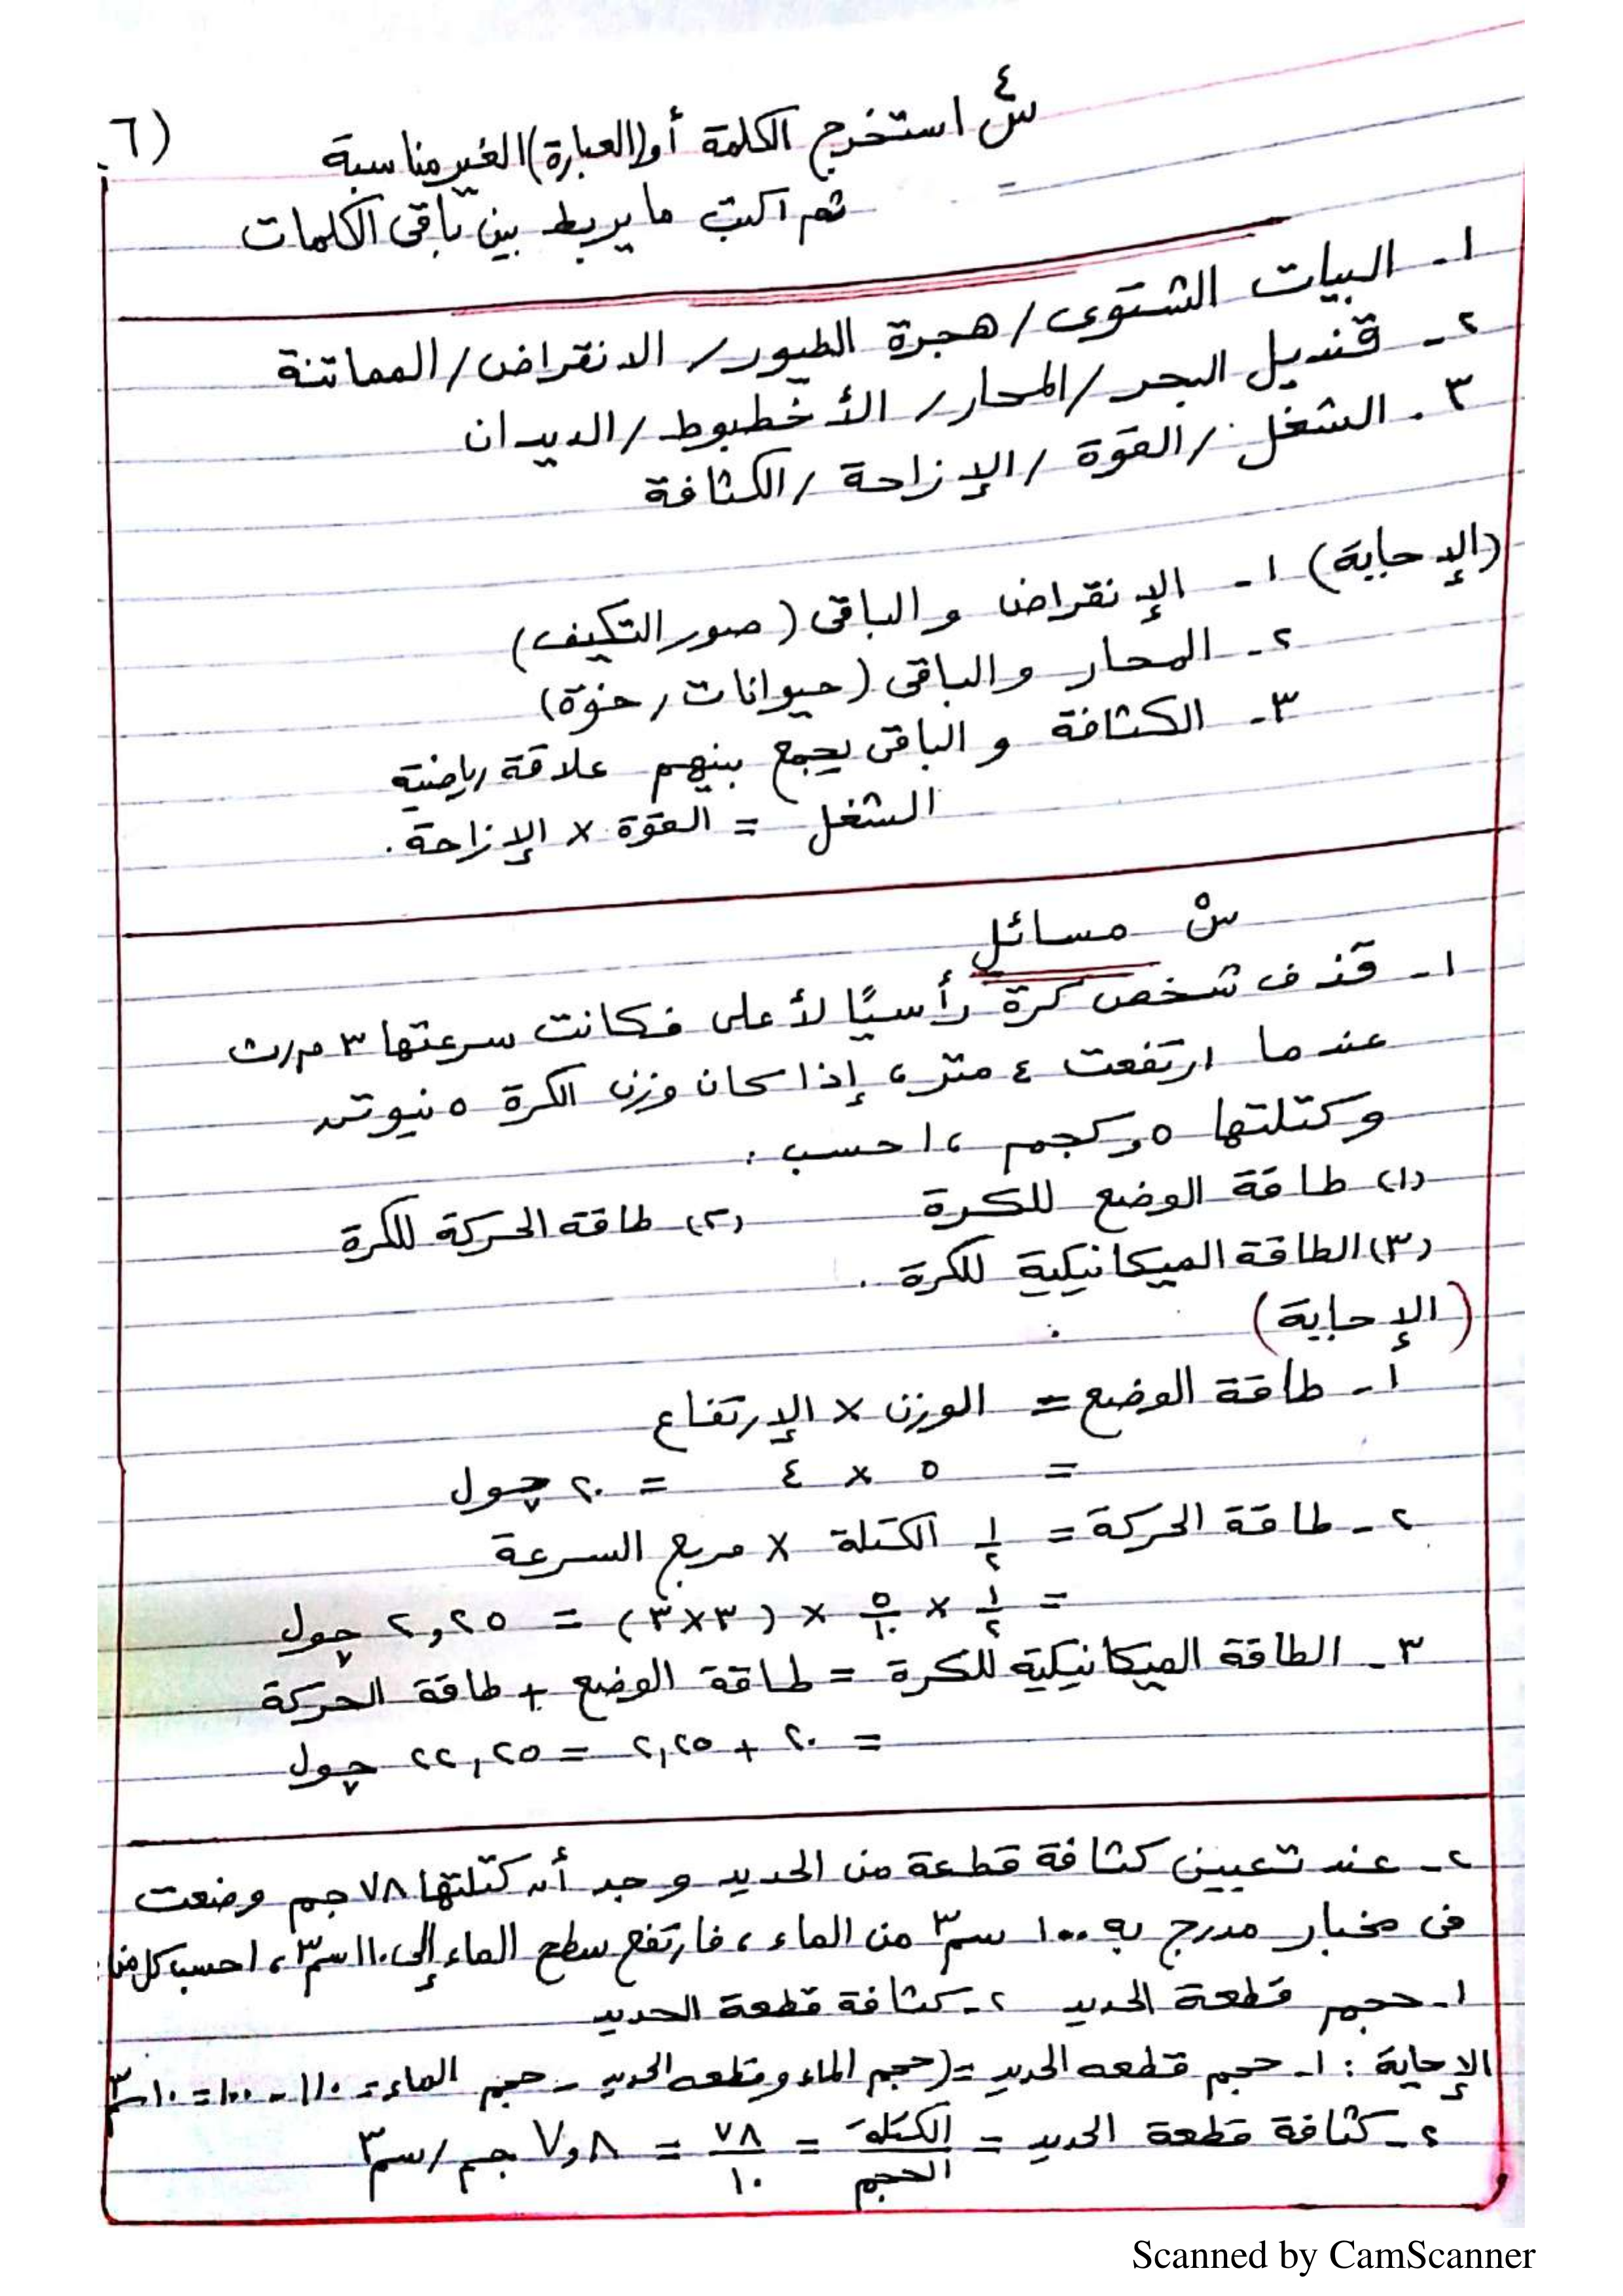 س٤ استخرج الكلمة أو (العبارة) الغير مناسبة
(٦
ثم اكتب ما يربط بين باقى الكلمات
١- البيات الشتوى / هجرة الطيور / الانقراض / المماتنة
٢- قنديل البحر / المحار / الأخطبوط / الديدان
٣- الشغل / القوة / الإزاحة / الكثافة
(الإجابة) ١- الإنقراض والباقى (صور التكيف)
٢- المحار والباقى (حيوانات رخوة)
٣- الكثافة والباقى يجمع بينهم علاقة رياضية
الشغل = القوة × الإزاحة.
س٥ مسائل
١- قذف شخص كرة رأسيًا لأعلى فكانت سرعتها ٣ م/ث
عندما ارتفعت ٤ متر، إذا كان وزن الكرة ٥ نيوتن
وكتلتها ٥,كجم، احسب.
(١) طاقة الوضع للكرة (٢) طاقة الحركة للكرة
(٣) الطاقة الميكانيكية للكرة.
(الإجابة)
١- طاقة الوضع = الوزن × الإرتفاع
= ٥ × ٤ = ٢٠ چول
٢- طاقة الحركة = ١/٢ الكتلة × مربع السرعة
= ١/٢ × ٥/١٠ × (٣×٣) = ٢,٢٥ چول
٣- الطاقة الميكانيكية للكرة = طاقة الوضع + طاقة الحركة
= ٢٠ + ٢,٢٥ = ٢٢,٢٥ چول
٢- عند تعيين كثافة قطعة من الحديد وجد أن كتلتها ٧٨ جم وضعت
فى مخبار مدرج به ١٠٠ سم٣ من الماء، فارتفع سطح الماء إلى ١١٠ سم٣، احسب كل من:
١- حجم قطعة الحديد ٢- كثافة قطعة الحديد
الإجابة: ١- حجم قطعه الحديد = (حجم الماء وقطعه الحديد - حجم الماء = ١١٠ - ١٠٠ = ١٠ سم٣
٢- كثافة قطعة الحديد = الكتلة/الحجم = ٧٨/١٠ = ٧,٨ جم/سم٣
Scanned by CamScanner